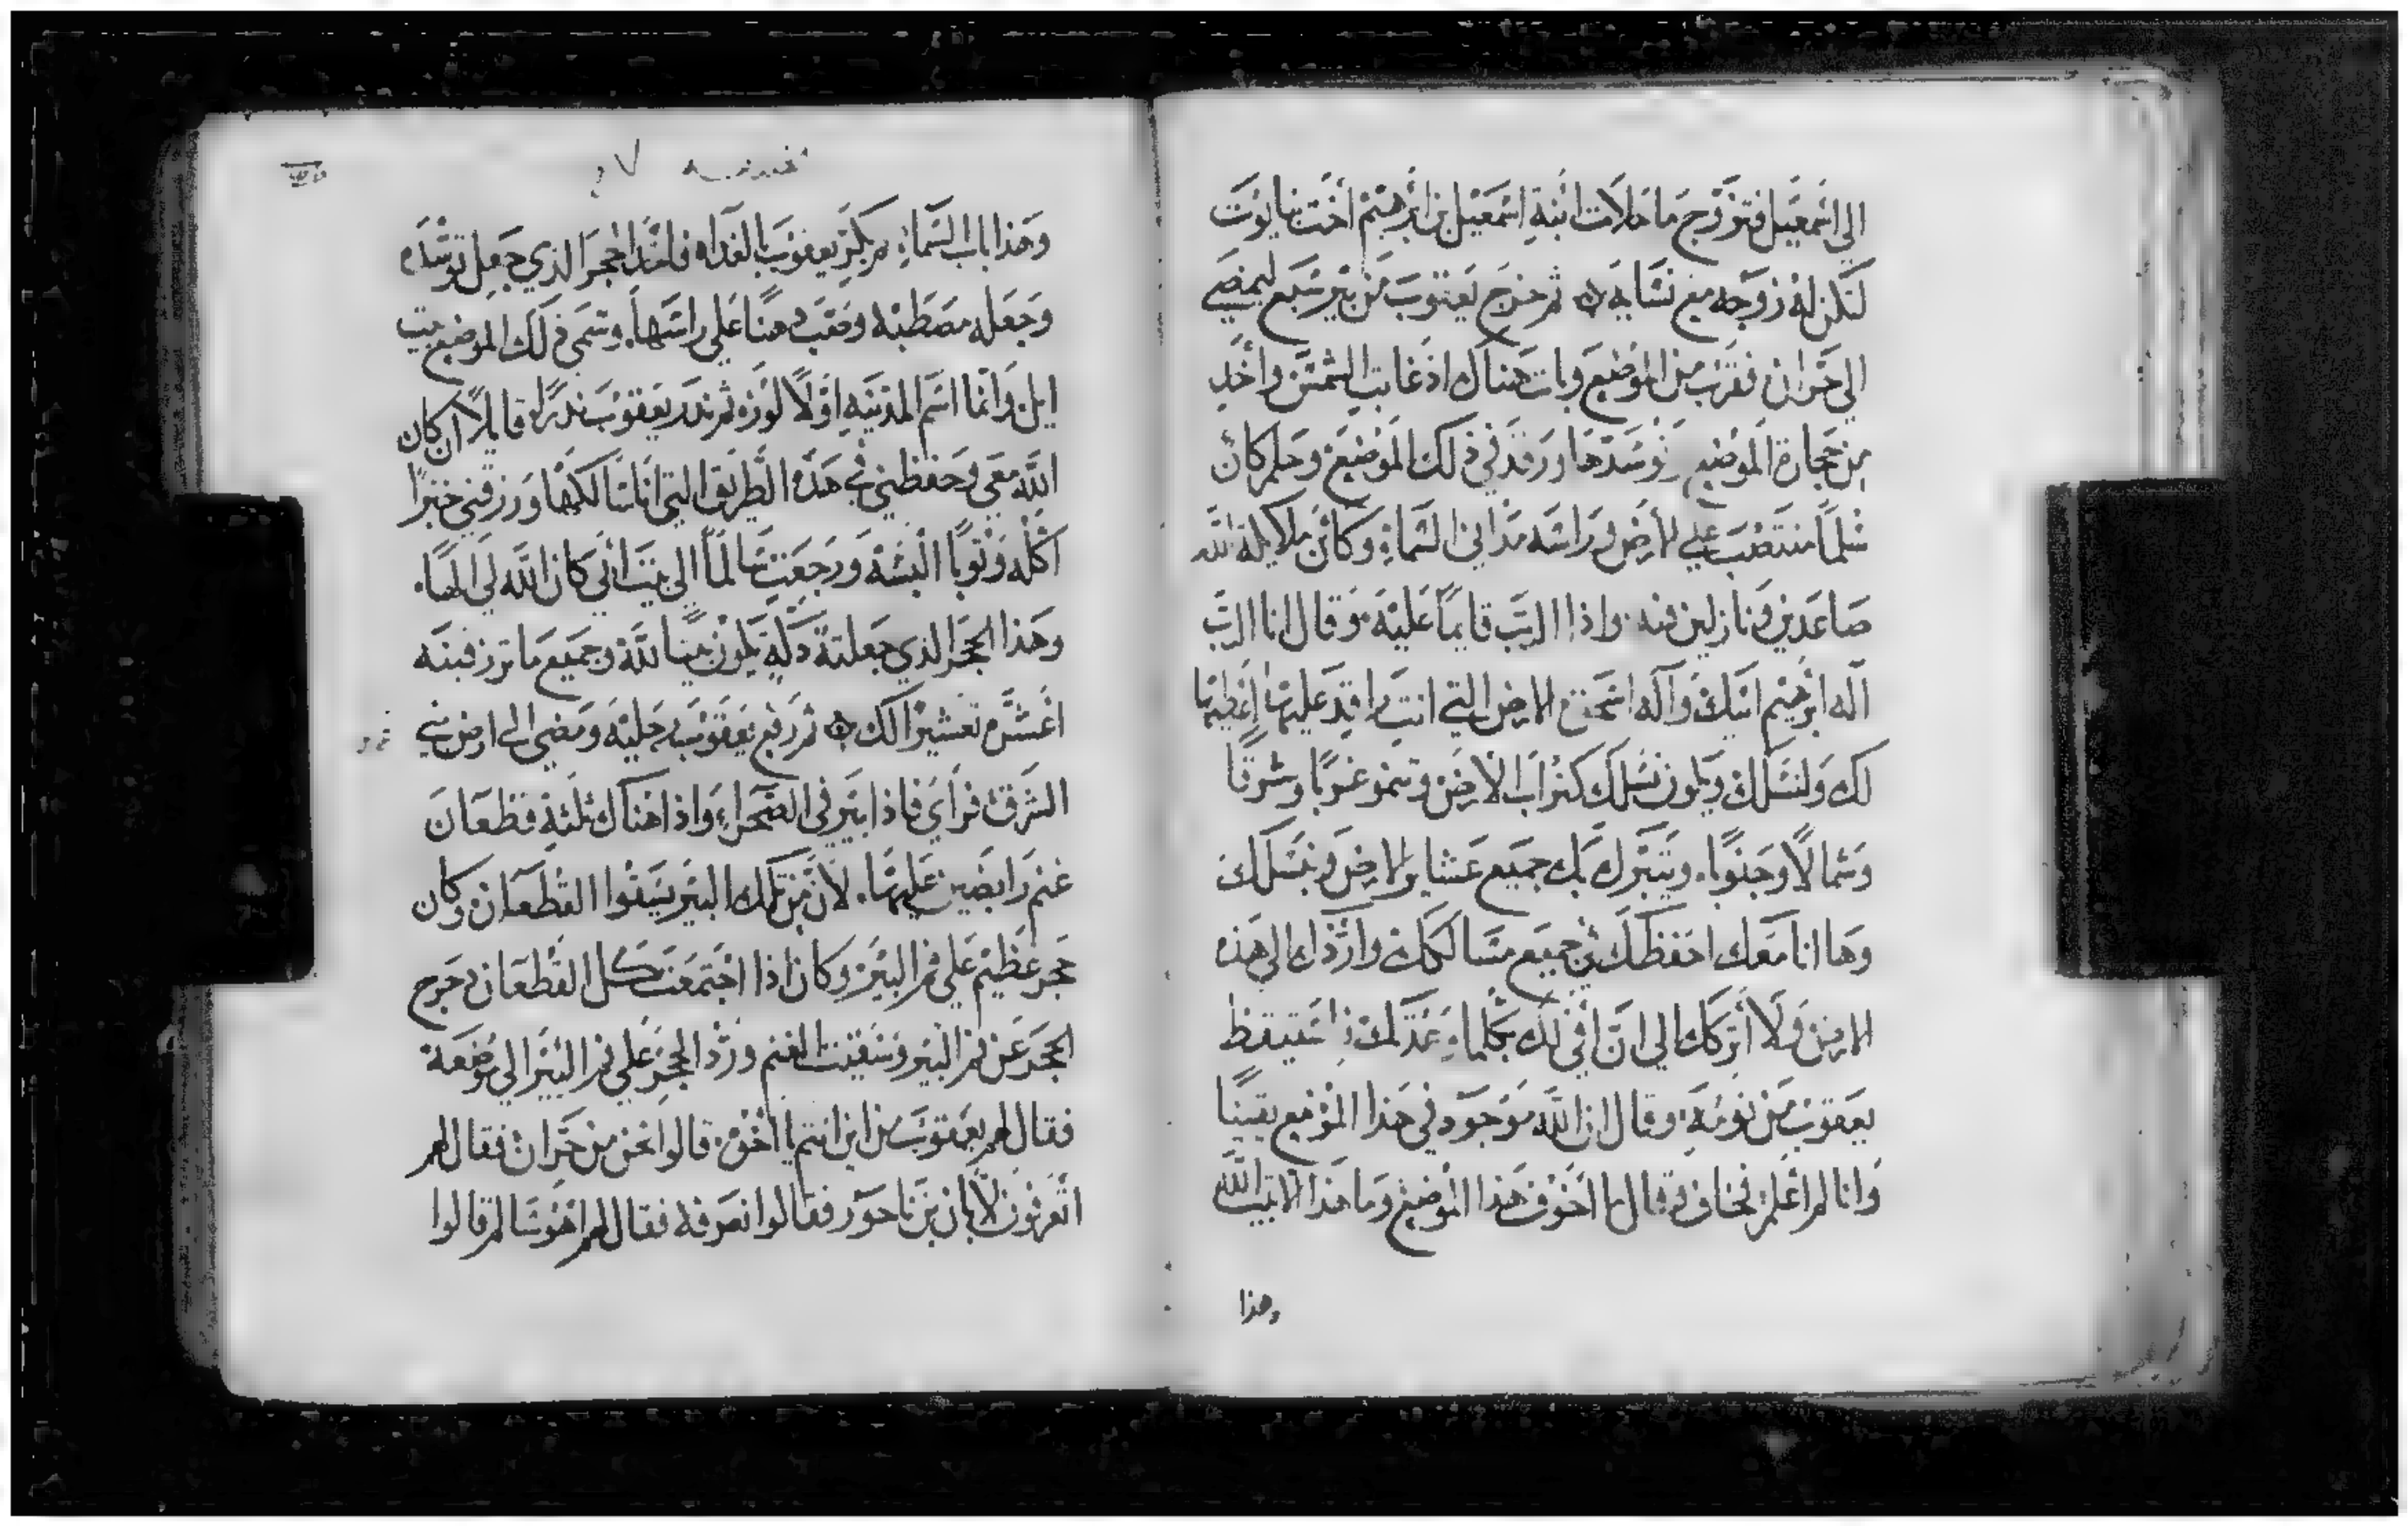 الي اسمعيل فتزوج ماحلات ابنة اسمعيل بن ابرهيم اخت نبايوت
لتكن له زوجه مع نسايه ثم خرج يعقوب من بير سبع ليمضي
الي حران فقرب من الموضع وبات هناك اذ غابت الشمس واخذ
من حجارة الموضع وتوسدها ورقد في ذلك الموضع وحلم كان
سلماً منتصب علي الارض وراسه مدّ الي السماء وكان ملايكة الله
صاعدين ونازلين فيه واذا الرب قايماً عليه وقال انا الرب
اله ابرهيم ابيك واله اسحق الارض التي انت راقد عليها اعطيها
لك ولنسلك ويكون نسلك كتراب الارض وتنمو غربًا وشرقًا
وشمالاً وجنوبًا ويتبرك بك جميع عشاير الارض وبنسلك
وها انا معك احفظك في جميع مسالكك واردك الي هذه
الارض ولا اتركك الي ان افي لك بكلما وعدتك فاستيقظ
يعقوب من نومه وقال ان الله موجود في هذا الموضع يقينًا
وانا لم اعلم فخاف وقال ما اخوف هذا الموضع وما هذا الا بيت الله
وهذا
وهذا باب السماء ثم بكر يعقوب بالغداه فاخذ الحجر الذي جعل توسده
وجعله مصطبه وصب دهنًا علي راسها وسمي ذلك الموضع بيت
ايل وانما اسم المدينه اولاً لوزه ثم ندر يعقوب ندرًا قايلاً ان كان
الله معي وحفظني في هذه الطريق التي انا سالكها ورزقني خبزًا
اكله وثوبًا البسه ورجعت سالماً الي بيت ابي كان الله لي الهًا
وهذا الحجر الذي جعلته دكه يكون بيتا لله وجميع ما ترزقنيه
اعشره تعشيرًا لك ثم رفع يعقوب رجليه ومضي الي ارض بني
الشرق فراي فاذا بير في الصحراء واذا هناك ثلثة قطعان
غنم رابضين عليها لان من تلك البير يسقوا القطعان وكان
حجر عظيم علي فم البير وكان اذا اجتمعت كل القطعان دحرج
الحجر عن فم البير وسقيت الغنم ورد الحجر علي فم البير الي موضعه
فقال لهم يعقوب من اين انتم يا اخوه قالوا نحن من حران فقال لهم
اتعرفون لابان بن ناحور فقالوا نعرفه فقال لهم اهو سالم قالوا